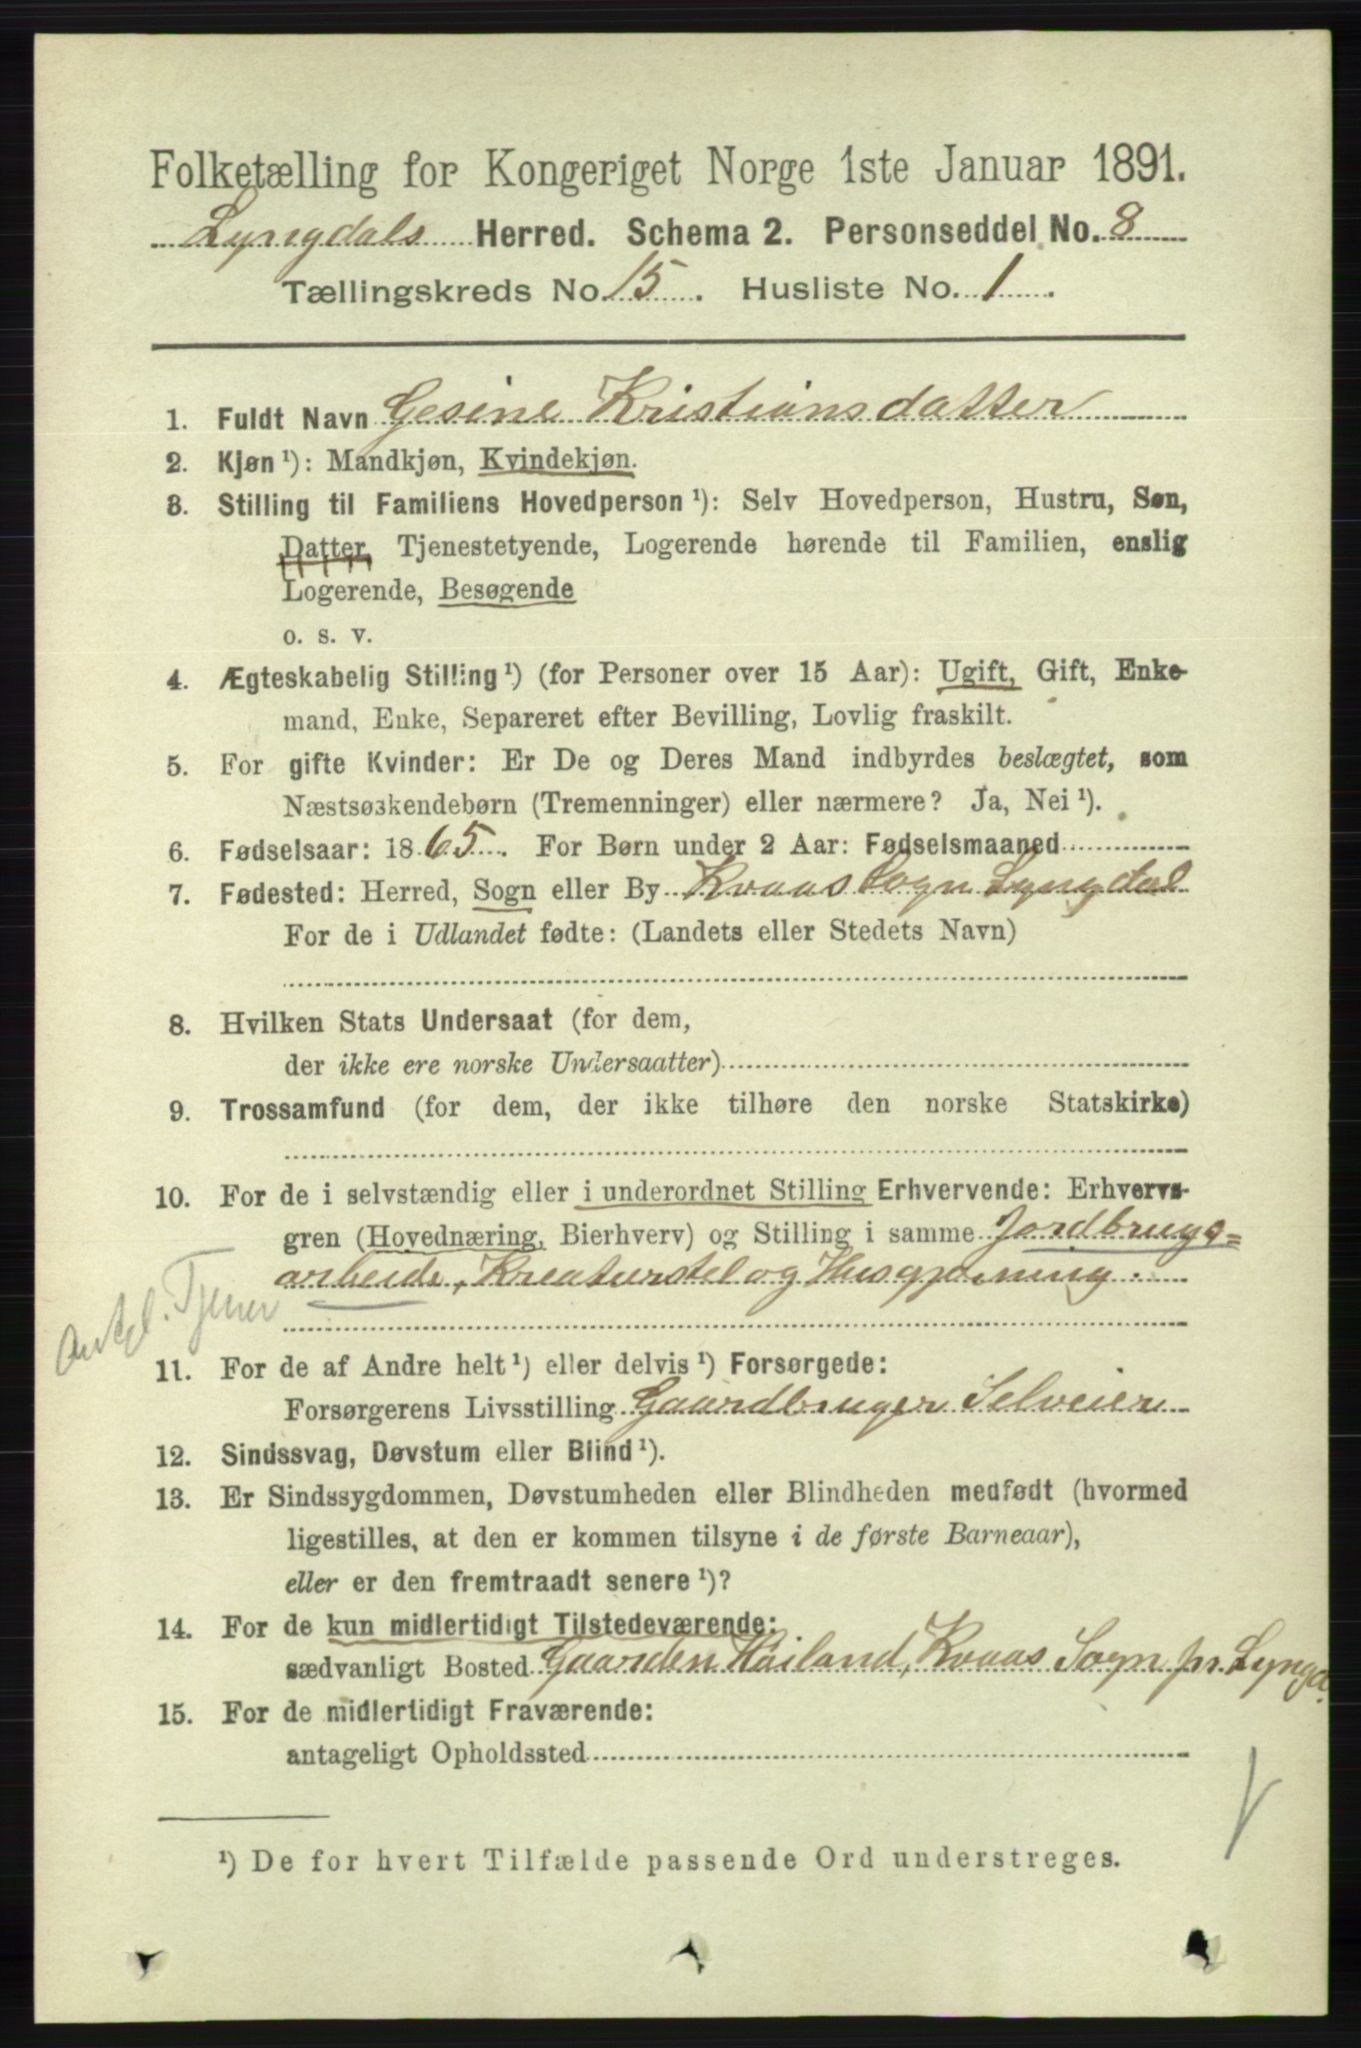 Folketælling for Kongeriget Norge 1ste Januar 1891.
Lyngdals Herred. Schema 2. Personseddel No. 8
Tællingskreds No. 15. Husliste No. 1.
1. Fuldt Navn Gesine Kristiansdatter
2. Kjøn ¹): Mandkjøn, Kvindekjøn.
3. Stilling til Familiens Hovedperson ¹): Selv Hovedperson, Hustru, Søn,
Datter, Tjenestetyende, Logerende hørende til Familien, enslig
Logerende, Besøgende
o. s. v.
4. Ægteskabelig Stilling ¹) (for Personer over 15 Aar): Ugift, Gift, Enke-
mand, Enke, Separeret efter Bevilling, Lovlig fraskilt.
5. For gifte Kvinder: Er De og Deres Mand indbyrdes beslægtet, som
Næstsøskendebørn (Tremenninger) eller nærmere? Ja, Nei ¹).
6. Fødselsaar: 1865. For Børn under 2 Aar: Fødselsmaaned
7. Fødested: Herred, Sogn eller By Kvaas Sogn Lyngdal
For de i Udlandet fødte: (Landets eller Stedets Navn)
8. Hvilken Stats Undersaat (for dem,
der ikke ere norske Undersaatter)
9. Trossamfund (for dem, der ikke tilhøre den norske Statskirke)
10. For de i selvstændig eller i underordnet Stilling Erhvervende: Erhvervs-
gren (Hovednæring, Bierhverv) og Stilling i samme Jordbrugs=
arbeide, Kreaturstel og Husgjerning.
Tjener
11. For de af Andre helt ¹) eller delvis ¹) Forsørgede:
Forsørgerens Livsstilling Gaardbruger Selveier
12. Sindssvag, Døvstum eller Blind ¹).
13. Er Sindssygdommen, Døvstumheden eller Blindheden medfødt (hvormed
ligestilles, at den er kommen tilsyne i de første Barneaar),
eller er den fremtraadt senere ¹)?
14. For de kun midlertidigt Tilstedeværende:
sædvanligt Bosted Gaarden Häiland, Kvaas Sogn pr. Lyngd.
15. For de midlertidigt Fraværende:
antageligt Opholdssted
¹) De for hvert Tilfælde passende Ord understreges.